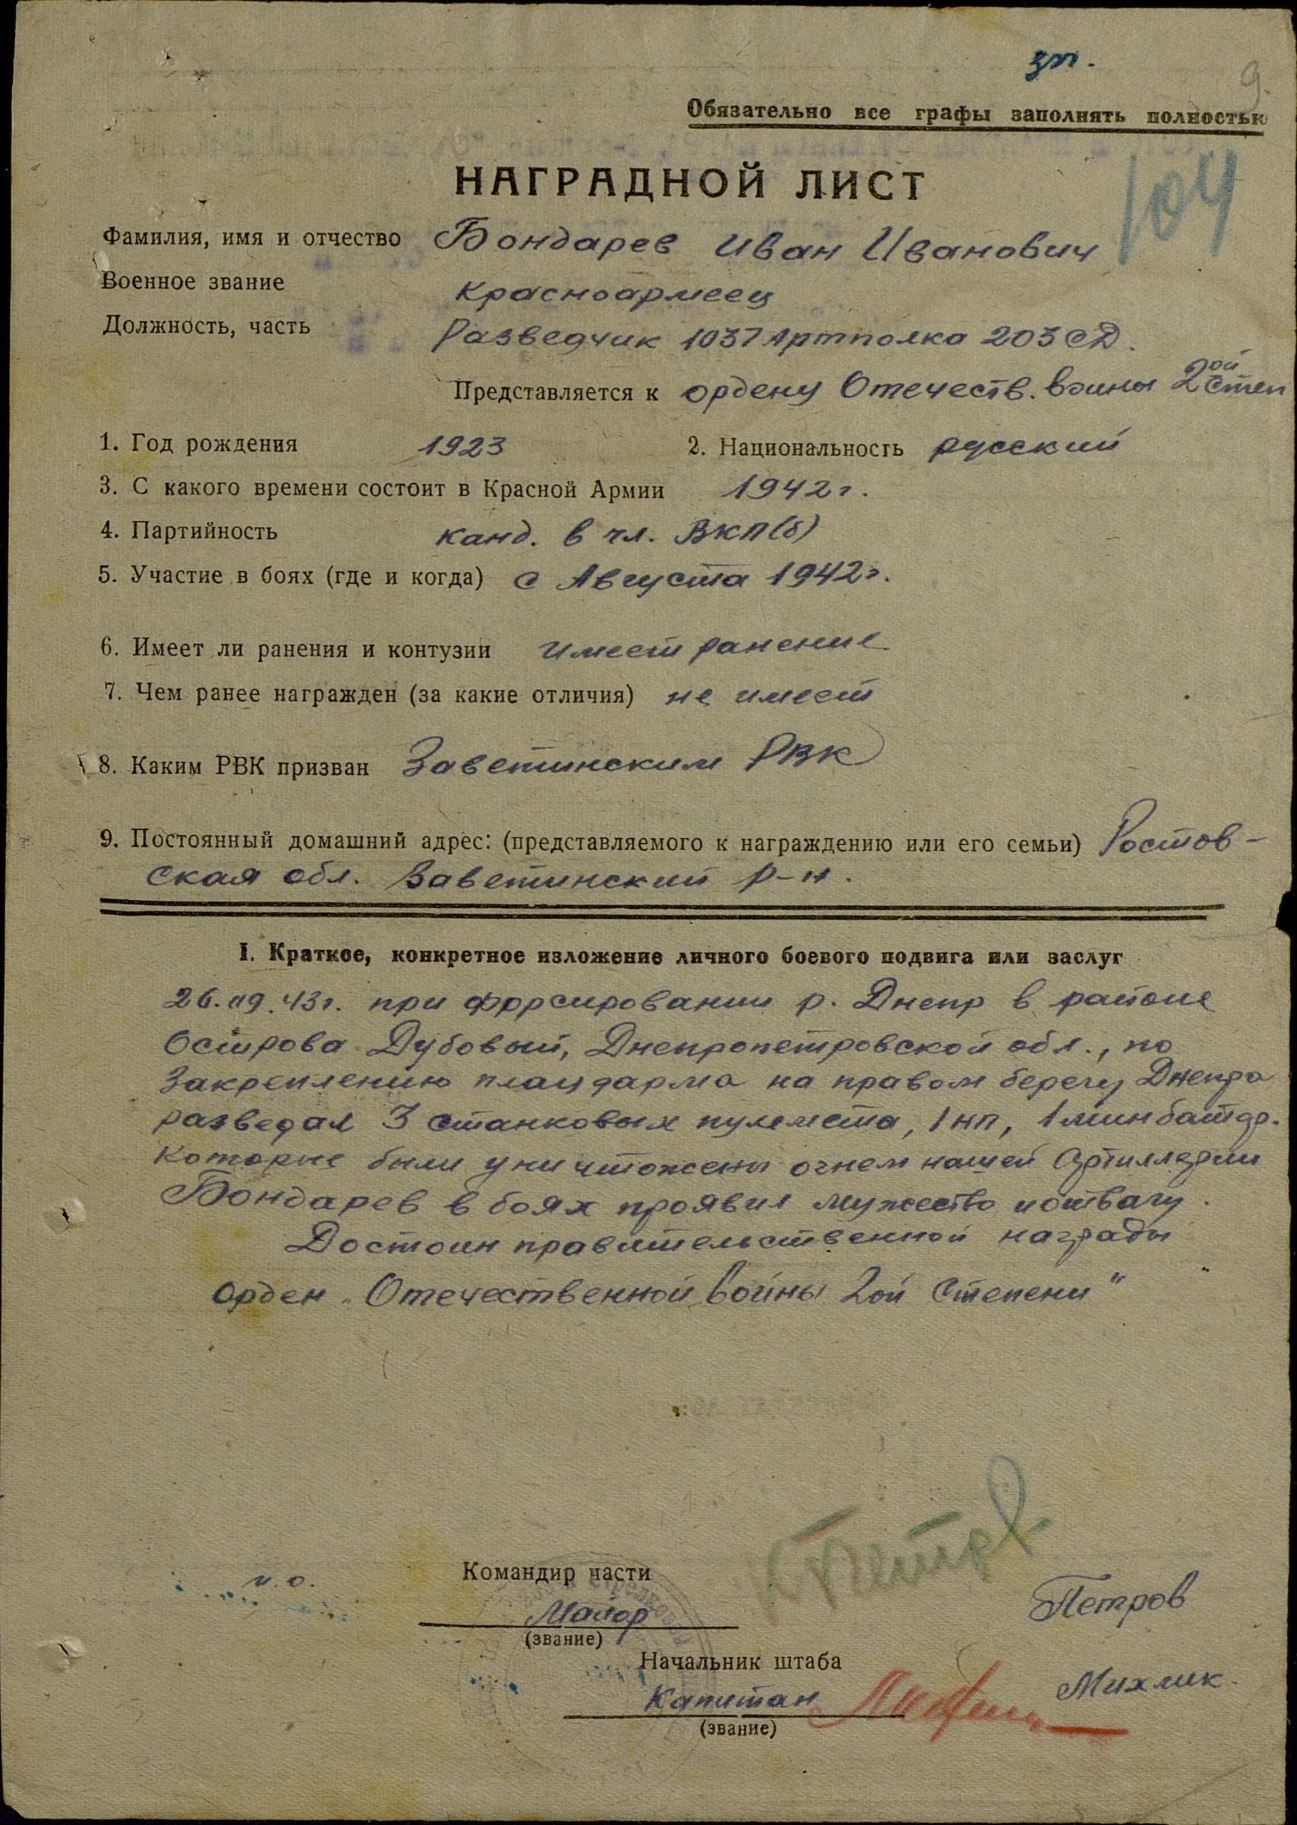 зп.
9.
Обязательно все графы заполнять полностью
НАГРАДНОЙ ЛИСТ
104
Фамилия, имя и отчество Бондарев Иван Иванович
Военное звание Красноармеец
Должность, часть Разведчик 1037 Артполка 203 СД.
Представляется к ордену Отечеств. войны 2ой степ
1. Год рождения 1923 2. Национальность русский
3. С какого времени состоит в Красной Армии 1942 г.
4. Партийность канд. в чл. ВКП(б)
5. Участие в боях (где и когда) с Августа 1942 г.
6. Имеет ли ранения и контузии имеет ранение
7. Чем ранее награжден (за какие отличия) не имеет
8. Каким РВК призван Заветинским РВК
9. Постоянный домашний адрес: (представляемого к награждению или его семьи) Ростов-
ская обл. Заветинский р-н.
I. Краткое, конкретное изложение личного боевого подвига или заслуг
26.09.43 г. при форсировании р. Днепр в районе
Острова Дубовый, Днепропетровской обл., по
Закреплению плацдарма на правом берегу Днепра
разведал 3 станковых пулемета, 1 нп, 1 минбатар.
Которые были уничтожены огнем нашей Артиллерии
Бондарев в боях проявил мужество и отвагу.
Достоин правительственной награды
орден „Отечественной Войны 2ой Степени"
и.о.
Командир части
Майор Петров
(звание)
Начальник штаба
Капитан Михлик.
(звание)